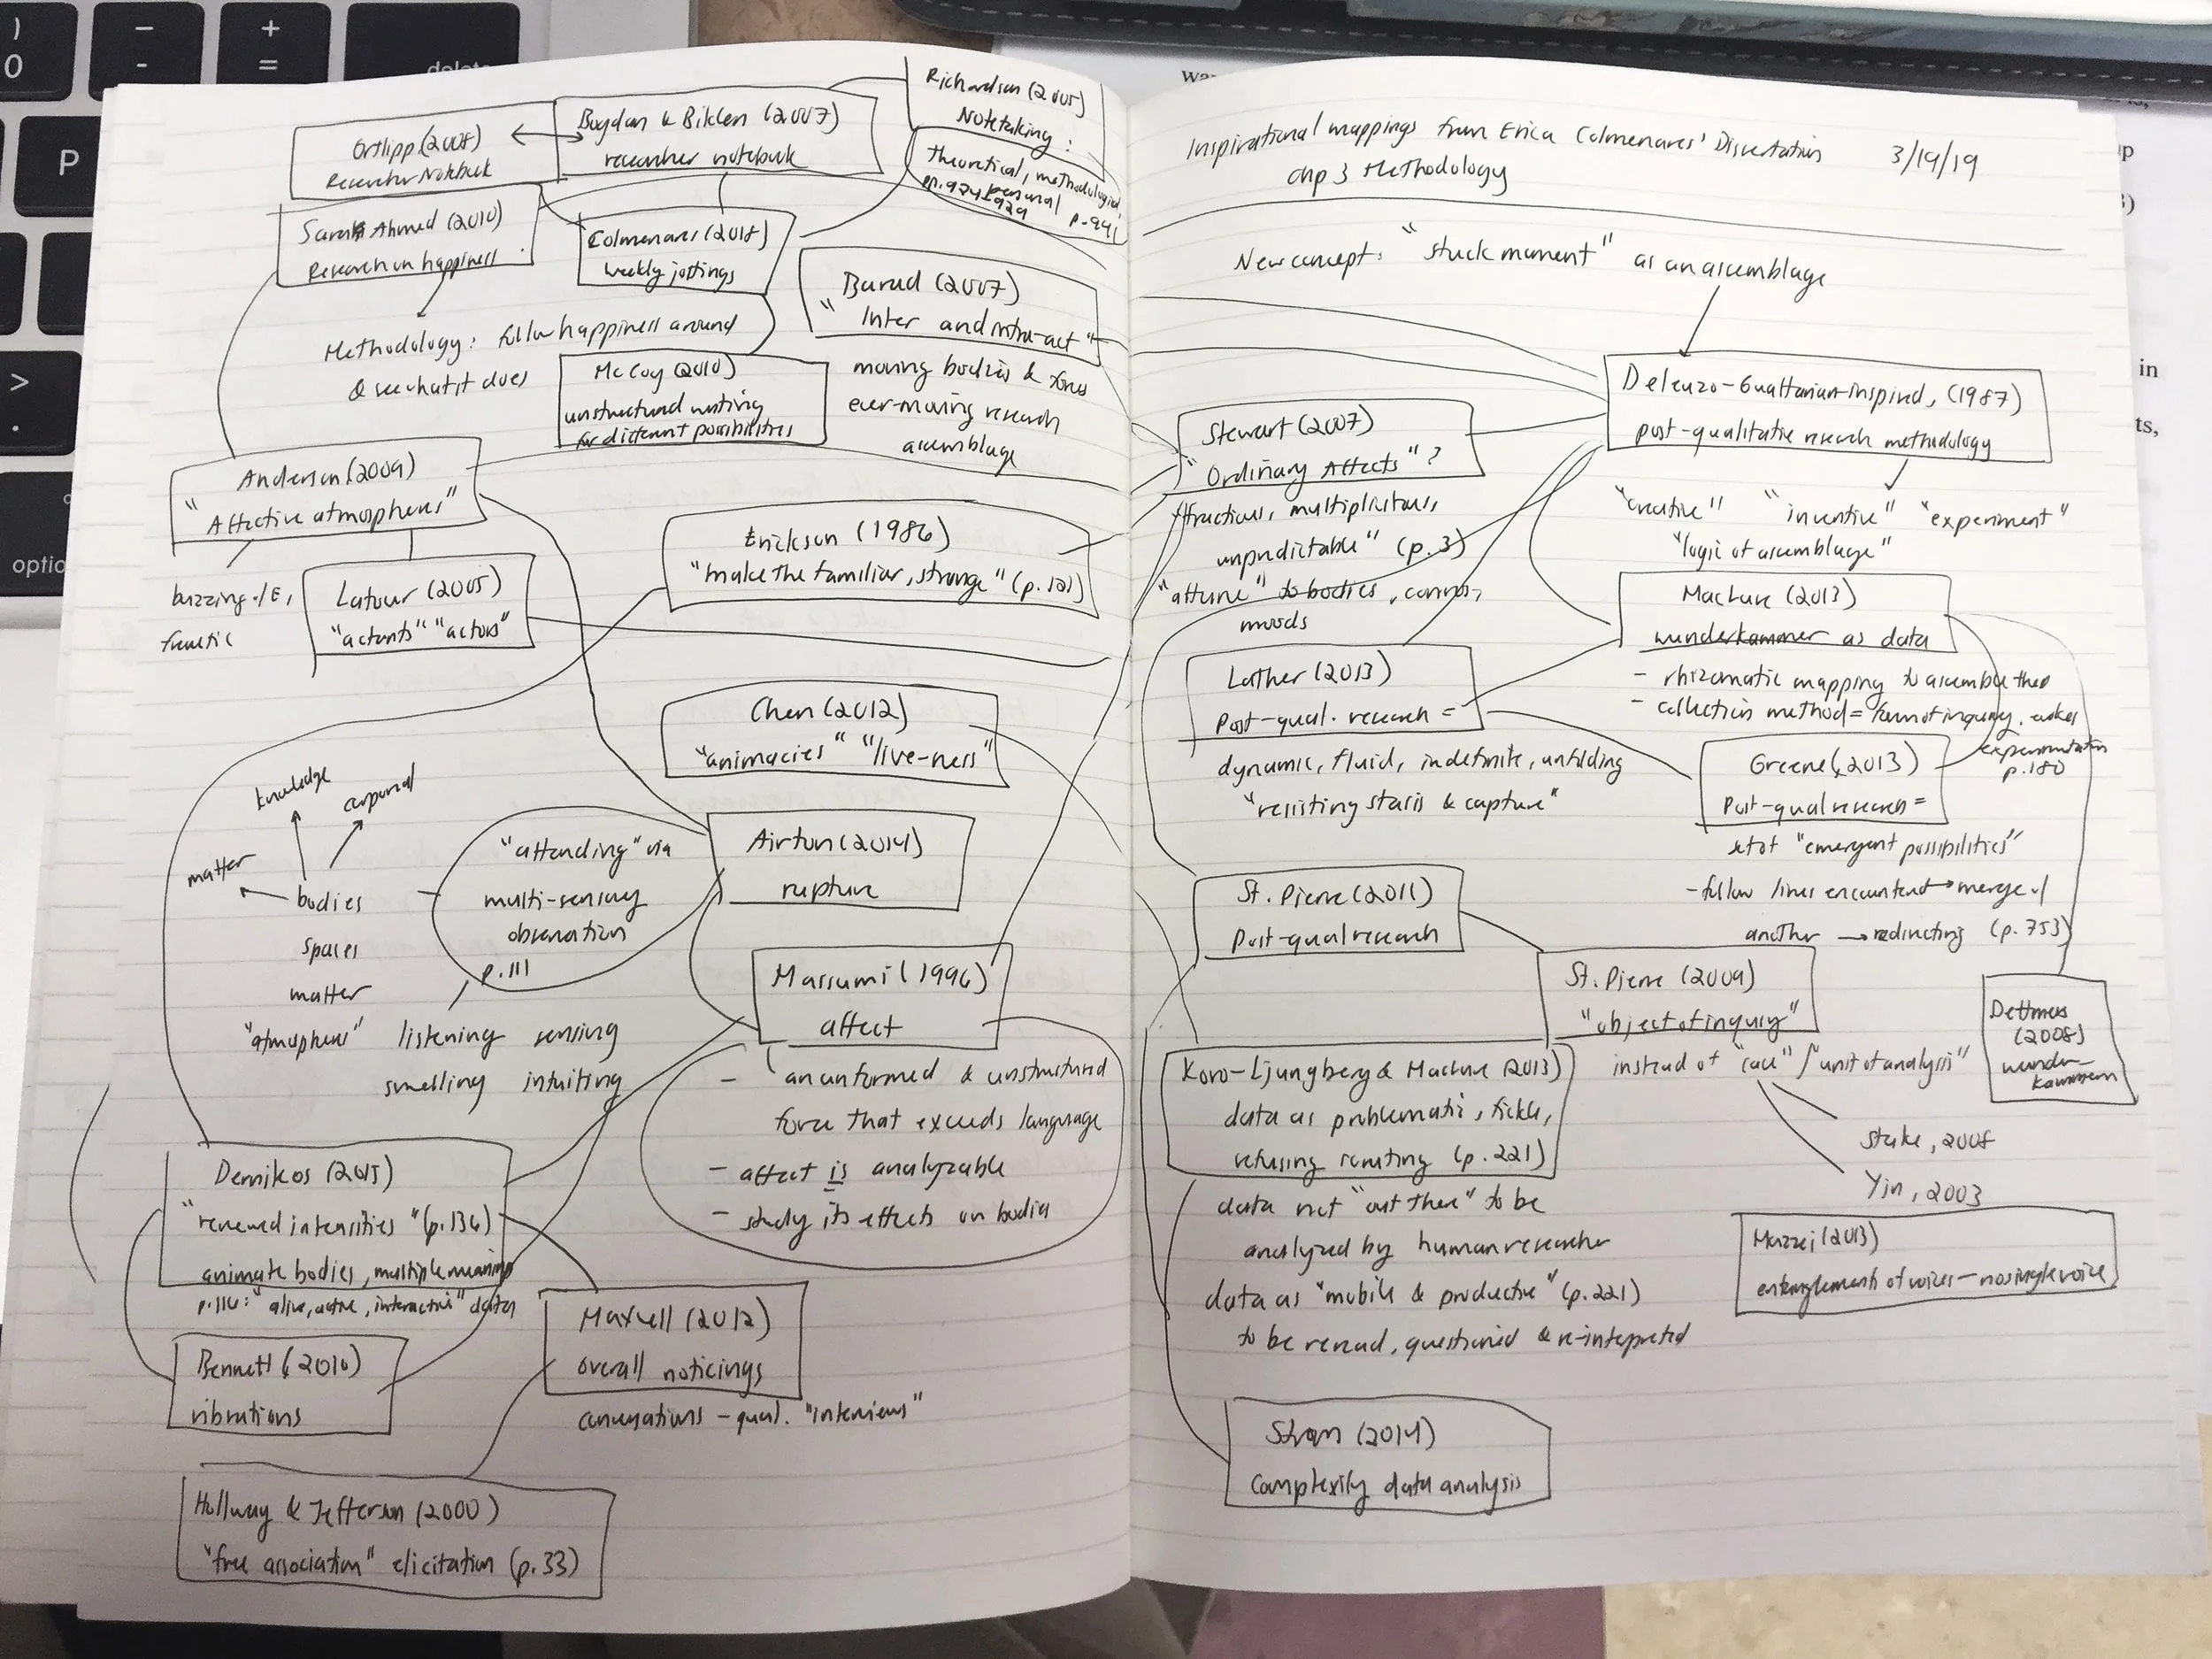 Ortlipp (2008)
Researcher Notebook
Bogdan & Biklen (2007)
researcher notebook
Richardson (2005)
Notetaking:
theoretical, methodological,
pp. 924-929 personal p. 941
Sarah Ahmed (2010)
Research on happiness
Colmenares (2018)
weekly jottings
Methodology: follow happiness around
& see what it does
Barad (2007)
"Inter and intra-act"
moving bodies & forces
ever-moving research
assemblage
McCoy (2010)
unstructured writing
for different possibilities
Anderson (2009)
"Affective atmospheres"
buzzing w/ E,
frenetic
Latour (2005)
"actants" "actors"
Erickson (1986)
"make the familiar, strange" (p. 121)
Chen (2012)
"animacies" "live-ness"
knowledge
corporeal
matter
bodies
spaces
matter
"atmospheres"
"attending" via
multi-sensory
observation
p. 111
listening sensing
smelling intuiting
Airton (2014)
rupture
Massumi (1996)
affect
- an unformed & unstructured
force that exceeds language
- affect is analyzable
- study its effects on bodies
Dernikos (2015)
"renewed intensities" (p. 136)
animate bodies, multiple meanings
p. 116: "alive, active, interactive" data
Bennett (2010)
vibrations
Maxwell (2012)
overall noticings
conversations - qual. "interviews"
Hollway & Jefferson (2000)
"free association" elicitation (p. 33)
Inspirational mappings from Erica Colmenares' Dissertation
chp 3 Methodology
3/19/19
New concept: "stuck moment" as an assemblage
Deleuzo-Guattarian-inspired, (1987)
post-qualitative research methodology
"creative" "inventive" "experiment"
"logic of assemblage"
Stewart (2007)
"Ordinary Affects"?
"fractious, multiplicitous,
unpredictable" (p. 3)
"attune" to bodies,
moods
MacLure (2013)
wunderkammer as data
- rhizomatic mapping to assemble them
- collection method = form of inquiry, evokes
experimentation
p. 180
Lather (2013)
Post-qual. research =
dynamic, fluid, indefinite, unfolding
"resisting stasis & capture"
Greene (2013)
Post-qual research =
set of "emergent possibilities"
- follow lines encounter → merge w/
another → redirecting (p. 753)
St. Pierre (2011)
Post-qual research
St. Pierre (2009)
"object of inquiry"
instead of "case" / "unit of analysis"
Stake, 2008
Yin, 2003
Dettmers
(2008)
wunder-
kammern
Koro-Ljungberg & MacLure (2013)
data as problematic, fickle,
refusing (p. 221)
data not "out there" to be
analyzed by human researcher
data as "mobile & productive" (p. 221)
to be reread, questioned & re-interpreted
Mazzei (2013)
entanglements of voices - no single voice
(2014)
Complexity data analysis
0
-
-
+
=
delete
P
>
.
option
in
ts,